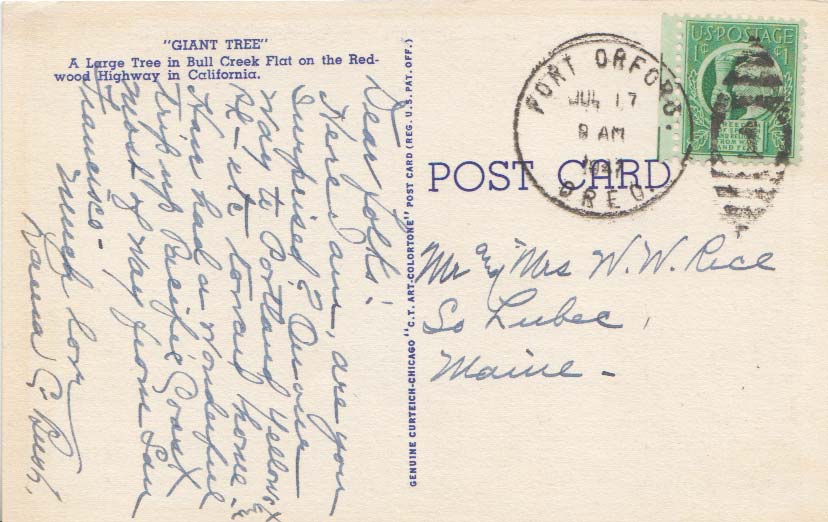 "GIANT TREE"
A Large Tree in Bull Creek Flat on the Red-
wood Highway in California.
Dear folks:
Here I am, are you
surprised? On our
way to Portland Yellow-
etc toward home.
Have had a wonderful
trip up Pacific Coast
most of way from San
Francisco -
Much love
GENUINE CURTEICH-CHICAGO "C.T. ART-COLORTONE" POST CARD (REG. U.S. PAT. OFF.)
POST CARD
PORT ORFORD.
JUL 17
8 AM
OREG.
U.S. POSTAGE
1¢ 1¢
Mr and Mrs W. W. Rice
So Lubec,
Maine -